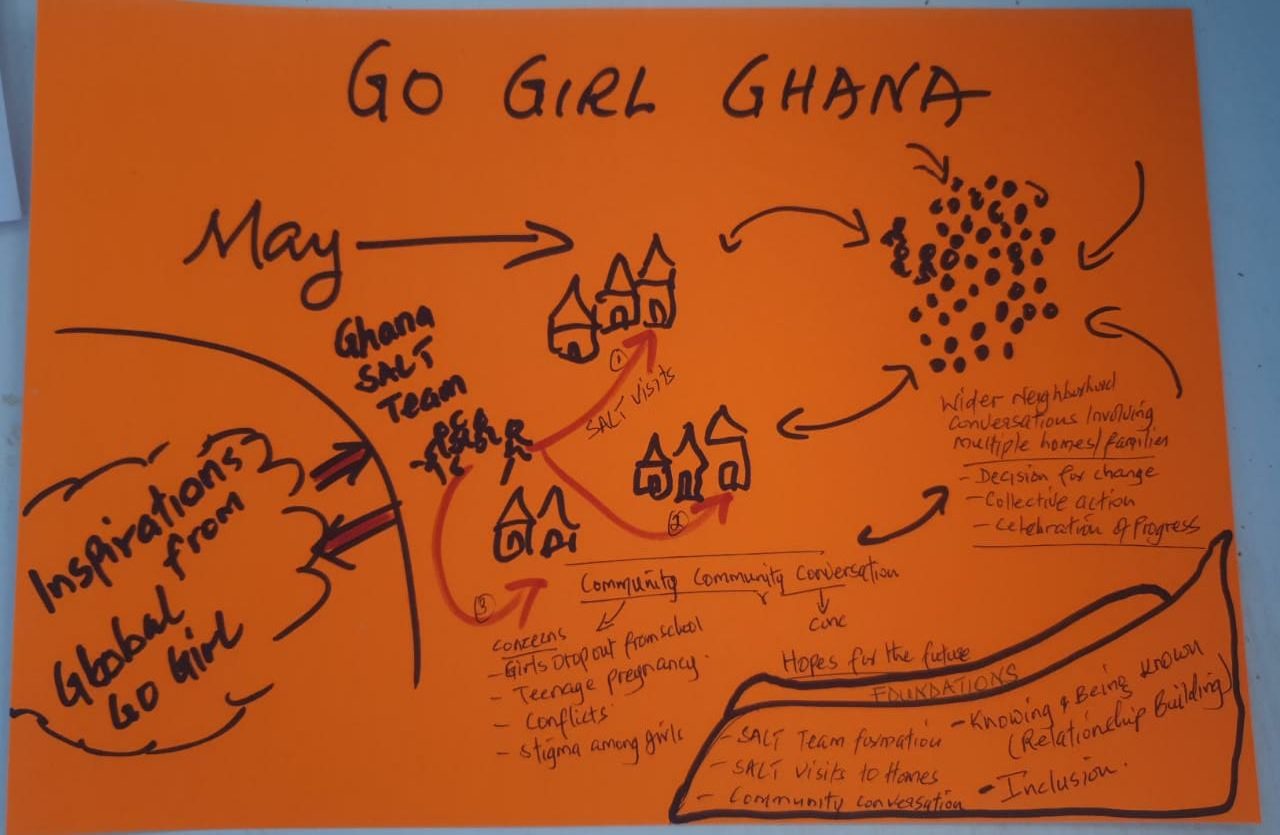 GO GIRL GHANA
May
Ghana
SALT
Team
① SALT VISITS
②
③
Inspirations
from
Global
GO Girl
Wider Neighborhood
conversations Involving
multiple homes/families
- Decision for change
- Collective action
- Celebration of Progress
Community Community Conversation
Concerns
- Girls Drop out from school
- Teenage pregnancy.
- Conflicts
- Stigma among girls
Hopes for the future
FOUNDATIONS
- SALT Team formation
- SALT Visits to Homes
- Community conversation
- Knowing & Being Known
(Relationship Building)
- Inclusion.